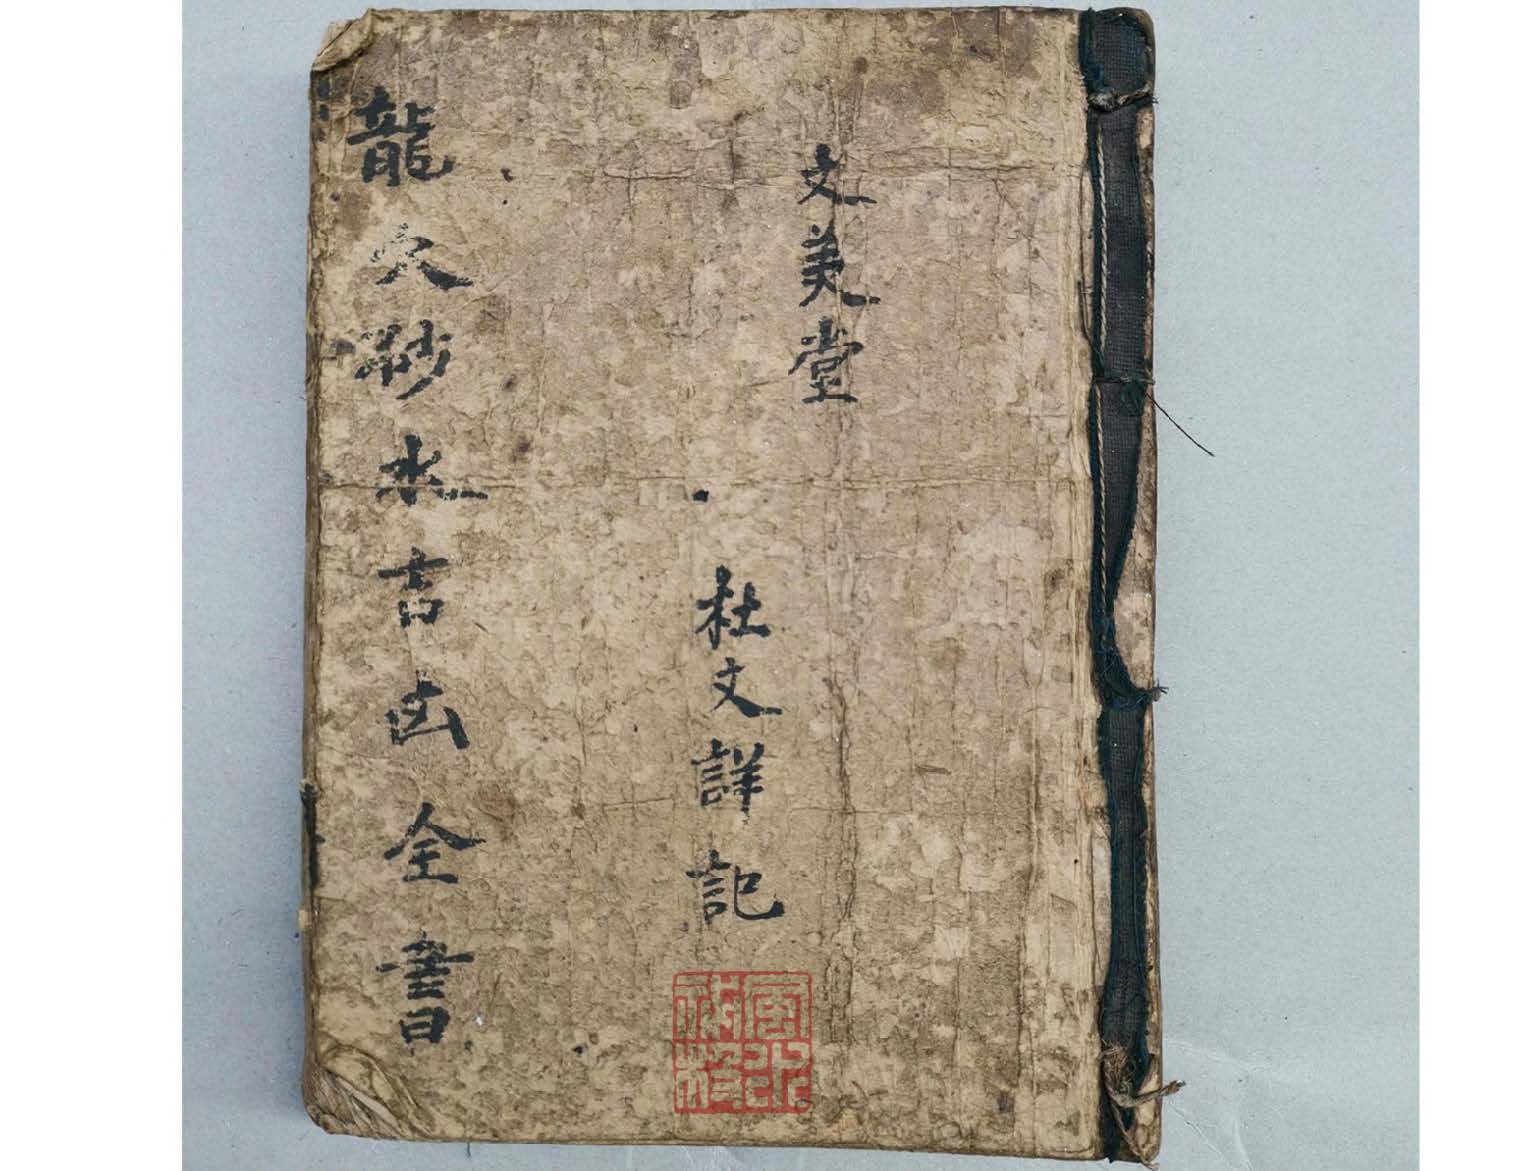 文美堂
杜文詳記
龍穴砂水吉凶全書